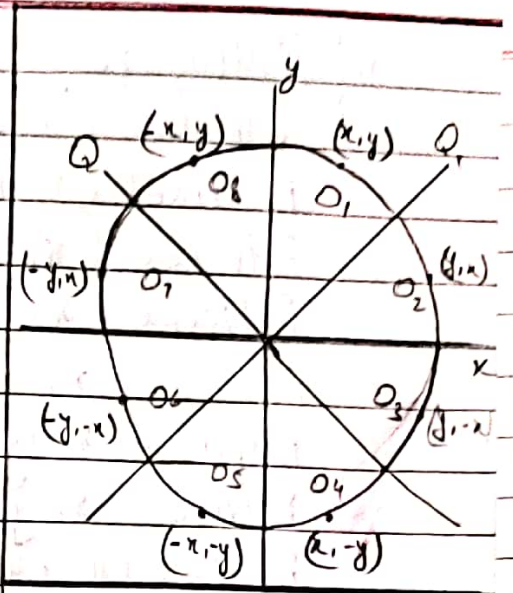 y
(-x,y) (x,y)
Q Q,
O8 O1
(-y,x) O7 O2 (y,x)
x
(-y,-x) O6 O3 (y,-x
O5 O4
(-x,-y) (x,-y)